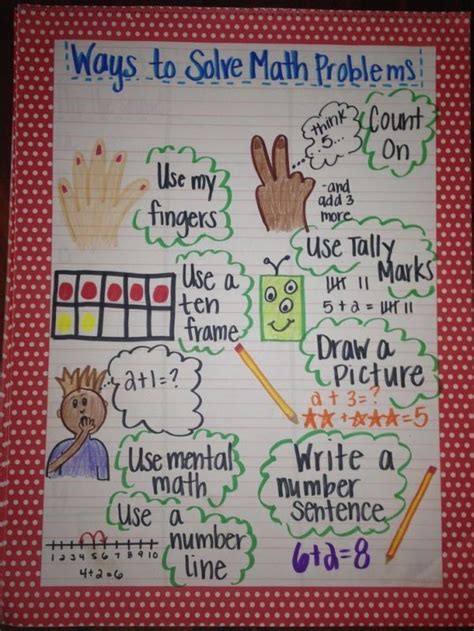 Ways to Solve Math Problems
Use my
fingers
think
5...
-and
add 3
more
Count
On
Use a
ten
frame
Use Tally
Marks
5+2=
Draw a
Picture
2+3=?
=5
2+1=?
Use mental
math
Write a
number
sentence
6+2=8
Use a
number
line
1 2 3 4 5 6 7 8 9 10
4+2=6